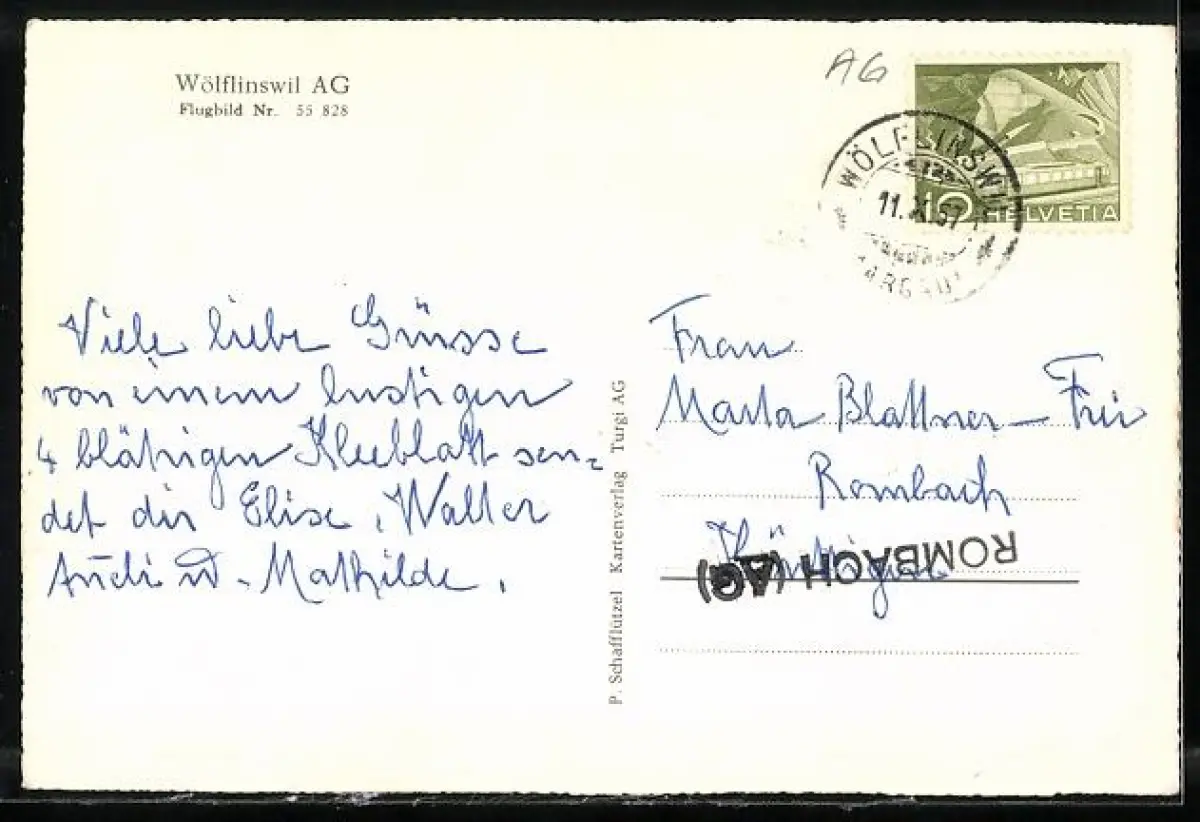 Wölflinswil AG
Flugbild Nr. 55 828
AG
WÖLFLINSWIL
11. X. 57
AARGAU
10 HELVETIA
Viele liebe Grüsse
von einem lustigen
4 blätrigen Kleeblatt sen=
det dir Elise, Walter
Ruedi u. Mathilde.
P. Schafflützel Kartenverlag Turgi AG
Frau
Marta Blattner-Frei
Rombach
Küttigen
ROMBACH (AG)